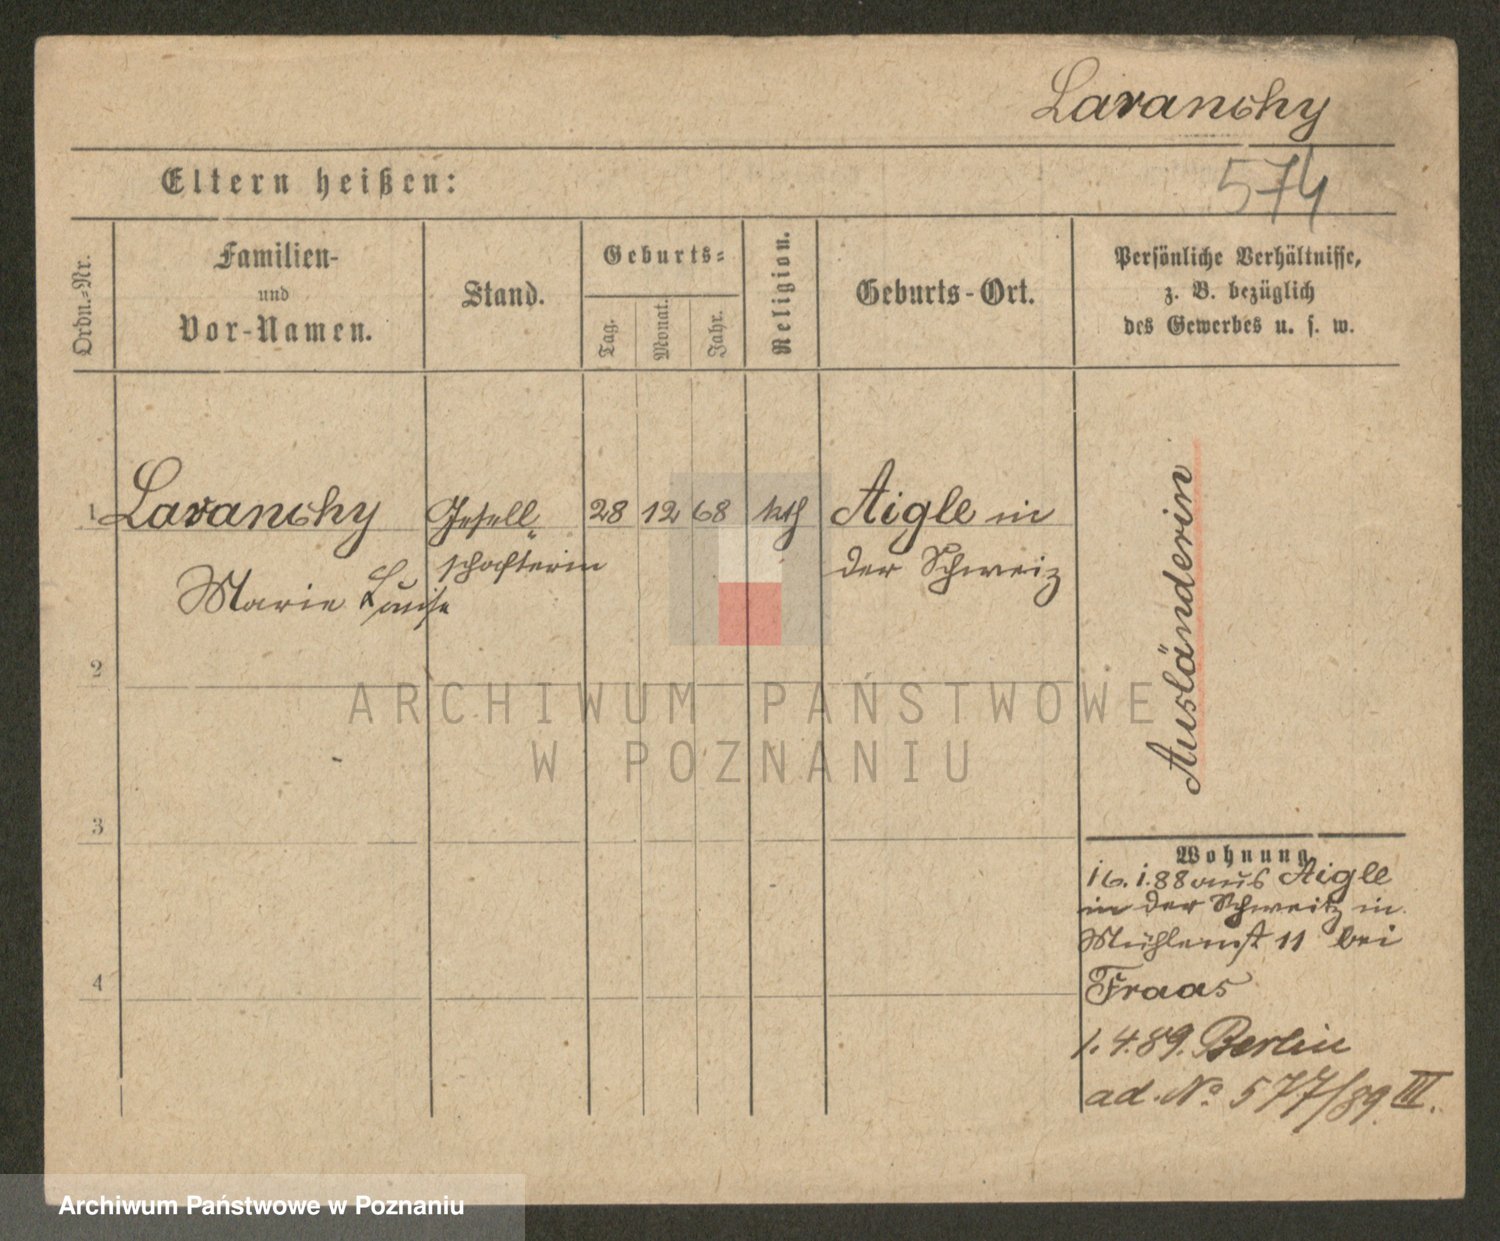 Lavanchy
574
Eltern heißen:
Ordn.-Nr.
Familien-
und
Vor-Namen.
Stand.
Geburts-
Tag.
Monat.
Jahr.
Religion.
Geburts-Ort.
Persönliche Verhältnisse,
z. B. bezüglich
des Gewerbes u. s. w.
1 Lavanchy Gesell- 28 12 68 Aigle in
schafterin der Schweiz
Marie Louise
Ausländerin
2
3
4
ARCHIWUM PAŃSTWOWE
W POZNANIU
Wohnung
16.1.88 aus Aigle
in der Schweitz in
Mühlenst 11 bei
Fraas
1.4.89. Berlin
ad. No 577/89 III.
Archiwum Państwowe w Poznaniu